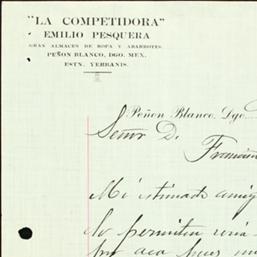 "LA COMPETIDORA"
EMILIO PESQUERA
GRAN ALMACEN DE ROPA Y ABARROTES.
PEÑON BLANCO, DGO. MEX.
ESTN. YERBANIS.
Peñon Blanco, Dgo.
Señor D.
Francisco
Mi estimado amigo